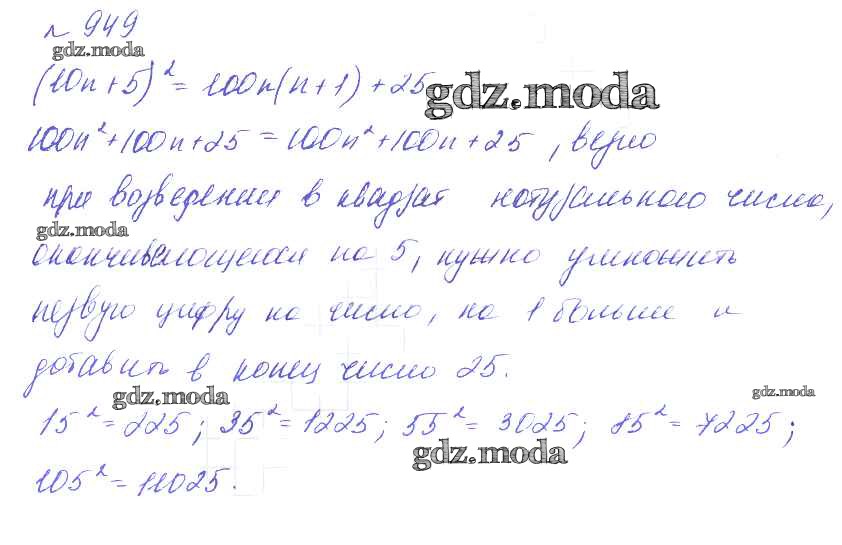 № 949
gdz.moda
(10n+5)² = 100n(n+1)+25
gdz.moda
100n²+100n+25 = 100n²+100n+25, верно
при возведении в квадрат натурального числа,
gdz.moda
оканчивающегося на 5, нужно умножить
первую цифру на число, на 1 больше и
добавить в конец число 25.
gdz.moda
gdz.moda
15² = 225; 35² = 1225; 55² = 3025; 85² = 7225;
gdz.moda
105² = 11025.